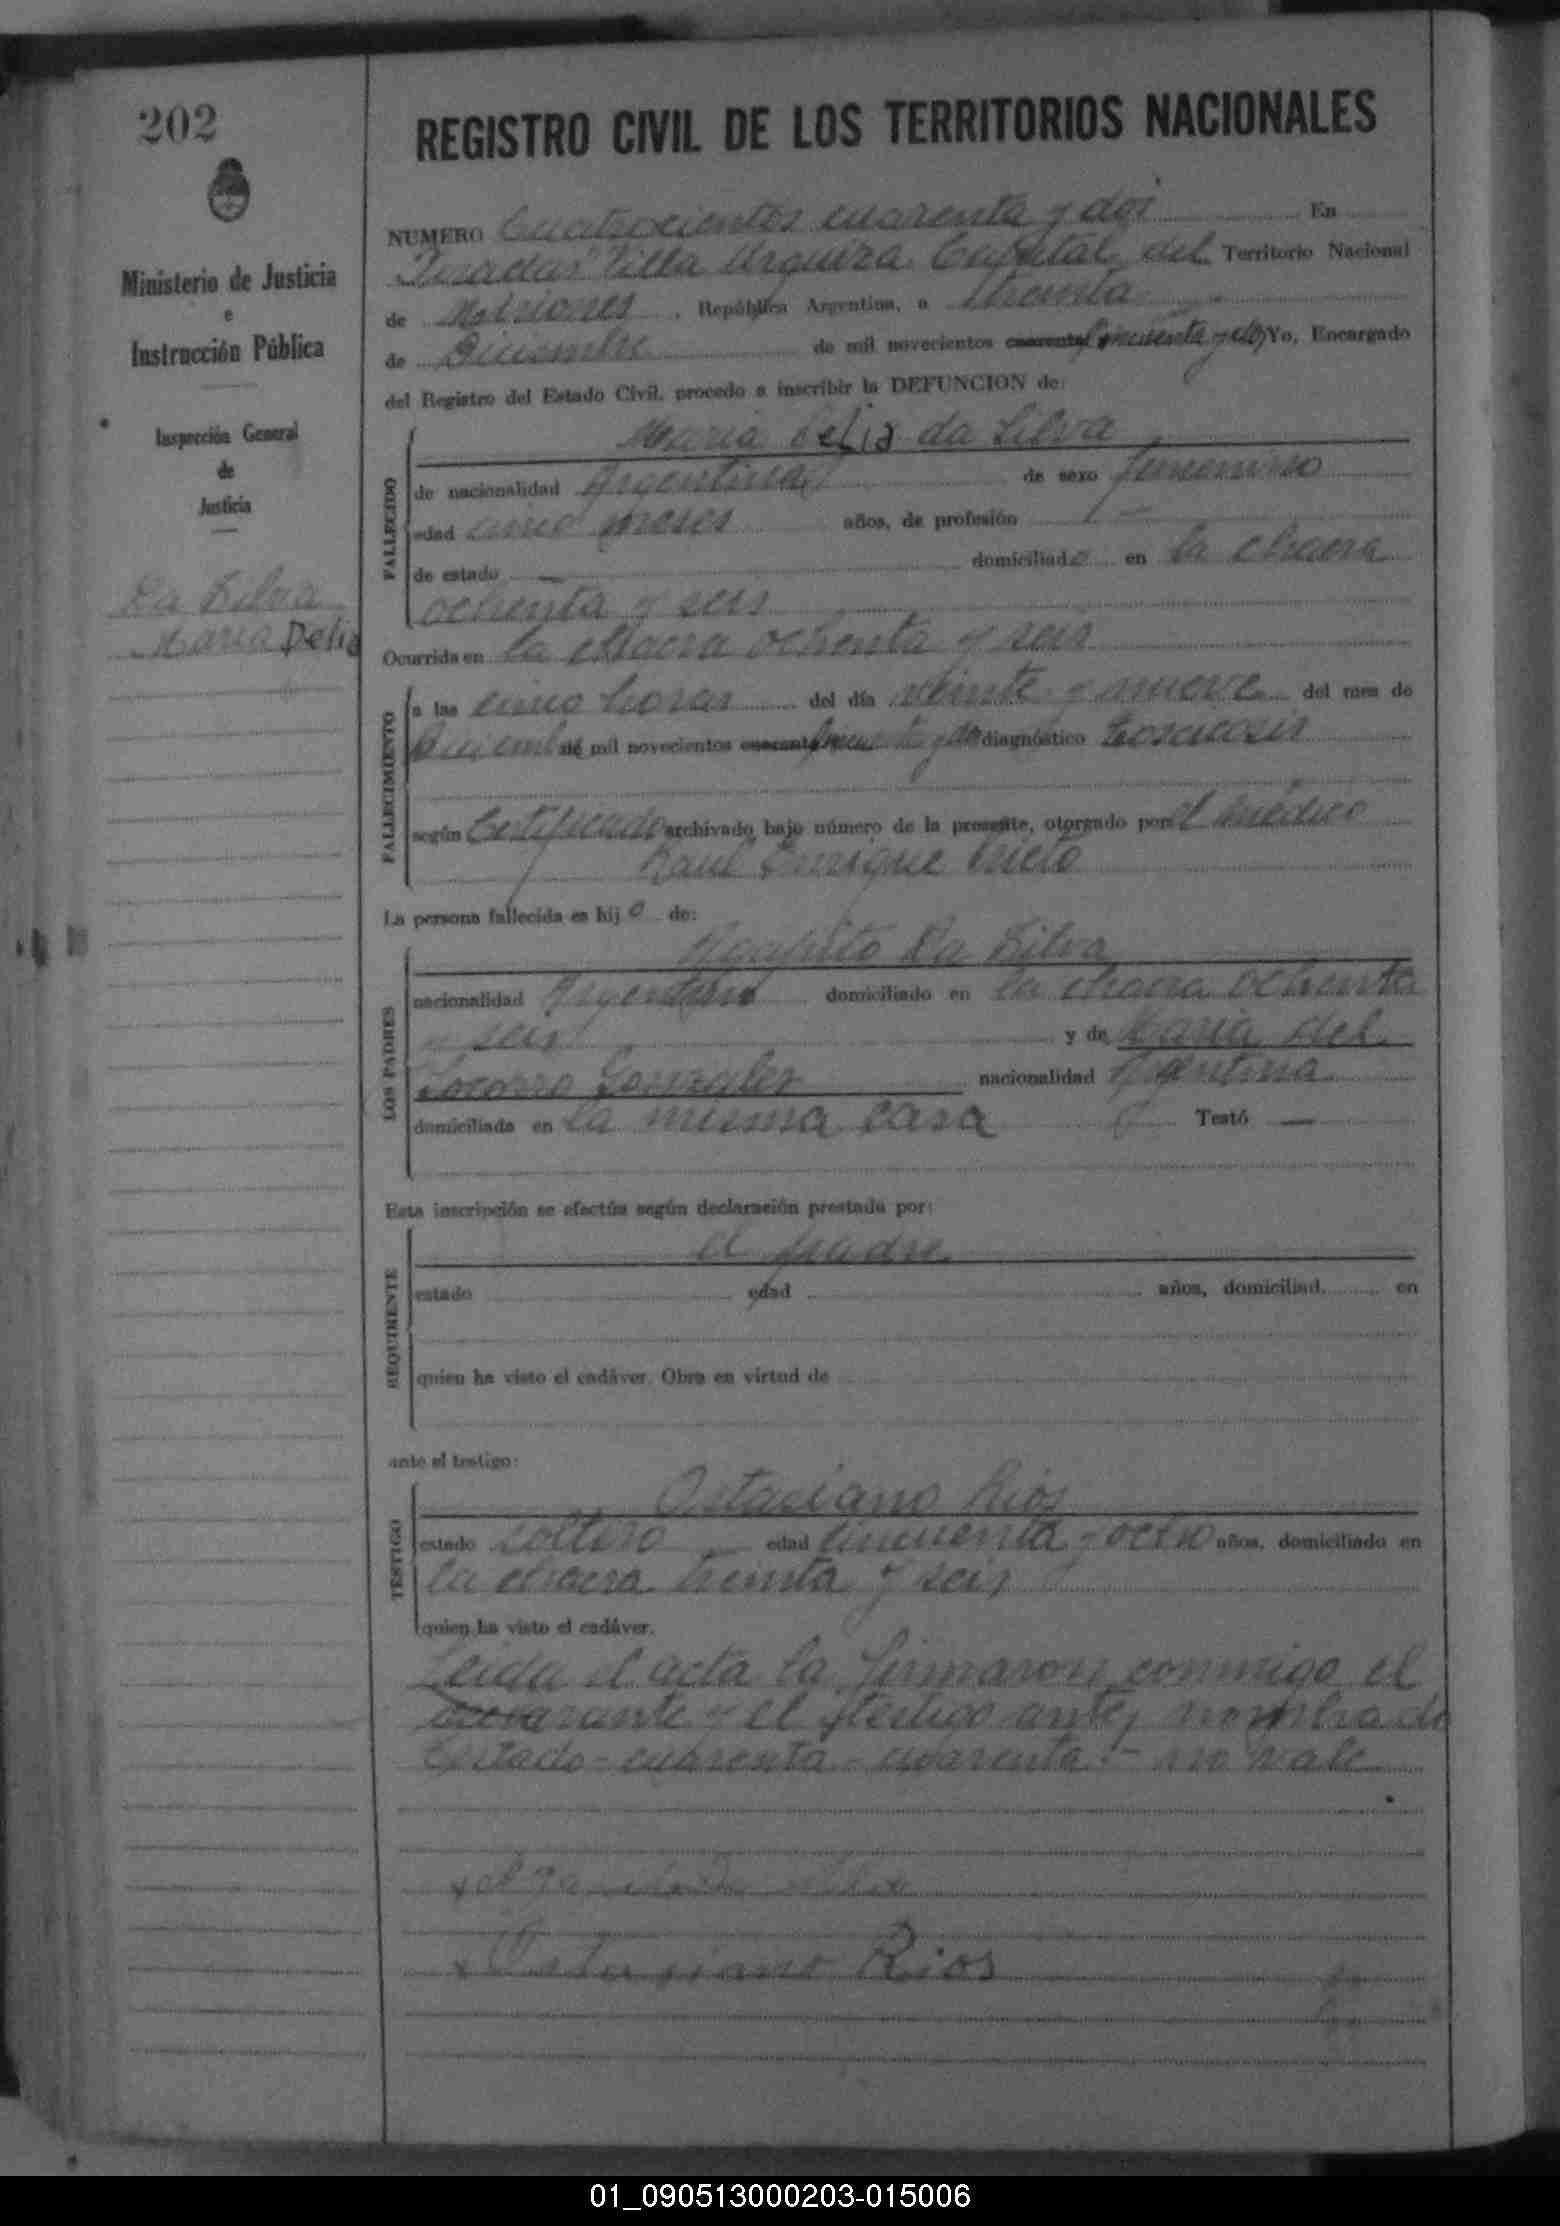 202
REGISTRO CIVIL DE LOS TERRITORIOS NACIONALES
Ministerio de Justicia
e
Instrucción Pública
Inspección General
de
Justicia
Da Silva
Maria Delia
NUMERO Cuatrocientos cuarenta y dos En
Posadas Villa Urquiza Capital del Territorio Nacional
de Misiones, República Argentina, a treinta
de Diciembre de mil novecientos cuarenta cincuenta y dos Yo, Encargado
del Registro del Estado Civil, procedo a inscribir la DEFUNCION de:
FALLECIDO
Maria Delia da Silva
de nacionalidad Argentina de sexo femenino
edad cinco meses años, de profesión —
de estado — domiciliado en la chacra
ochenta y seis
Ocurrida en la chacra ochenta y seis
FALLECIMIENTO
a las cinco horas del día veinte y nueve del mes de
Diciembre de mil novecientos cuarenta cincuenta y dos diagnóstico Toxicosis
según Certificado archivado bajo número de la presente, otorgado por el médico
Raul Enrique Nieto
La persona fallecida es hijo de:
LOS PADRES
Agapito Da Silva
nacionalidad Argentino domiciliado en la chacra ochenta
y seis y de Maria del
Socorro Gonzalez nacionalidad Argentina
domiciliada en la misma casa Testó —
Esta inscripción se efectúa según declaración prestada por:
REQUIRENTE
el padre
estado edad años, domiciliad en
quien ha visto el cadáver. Obra en virtud de
ante el testigo:
TESTIGO
Ostaciano Rios
estado soltero edad cincuenta y ocho años, domiciliado en
la chacra treinta y seis
quien ha visto el cadáver.
Leida el acta la firmaron conmigo el
y el testigo antes nombrado
Testado - cuarenta - cuarenta - no vale
Silva
Ostaciano Rios
01_090513000203-015006